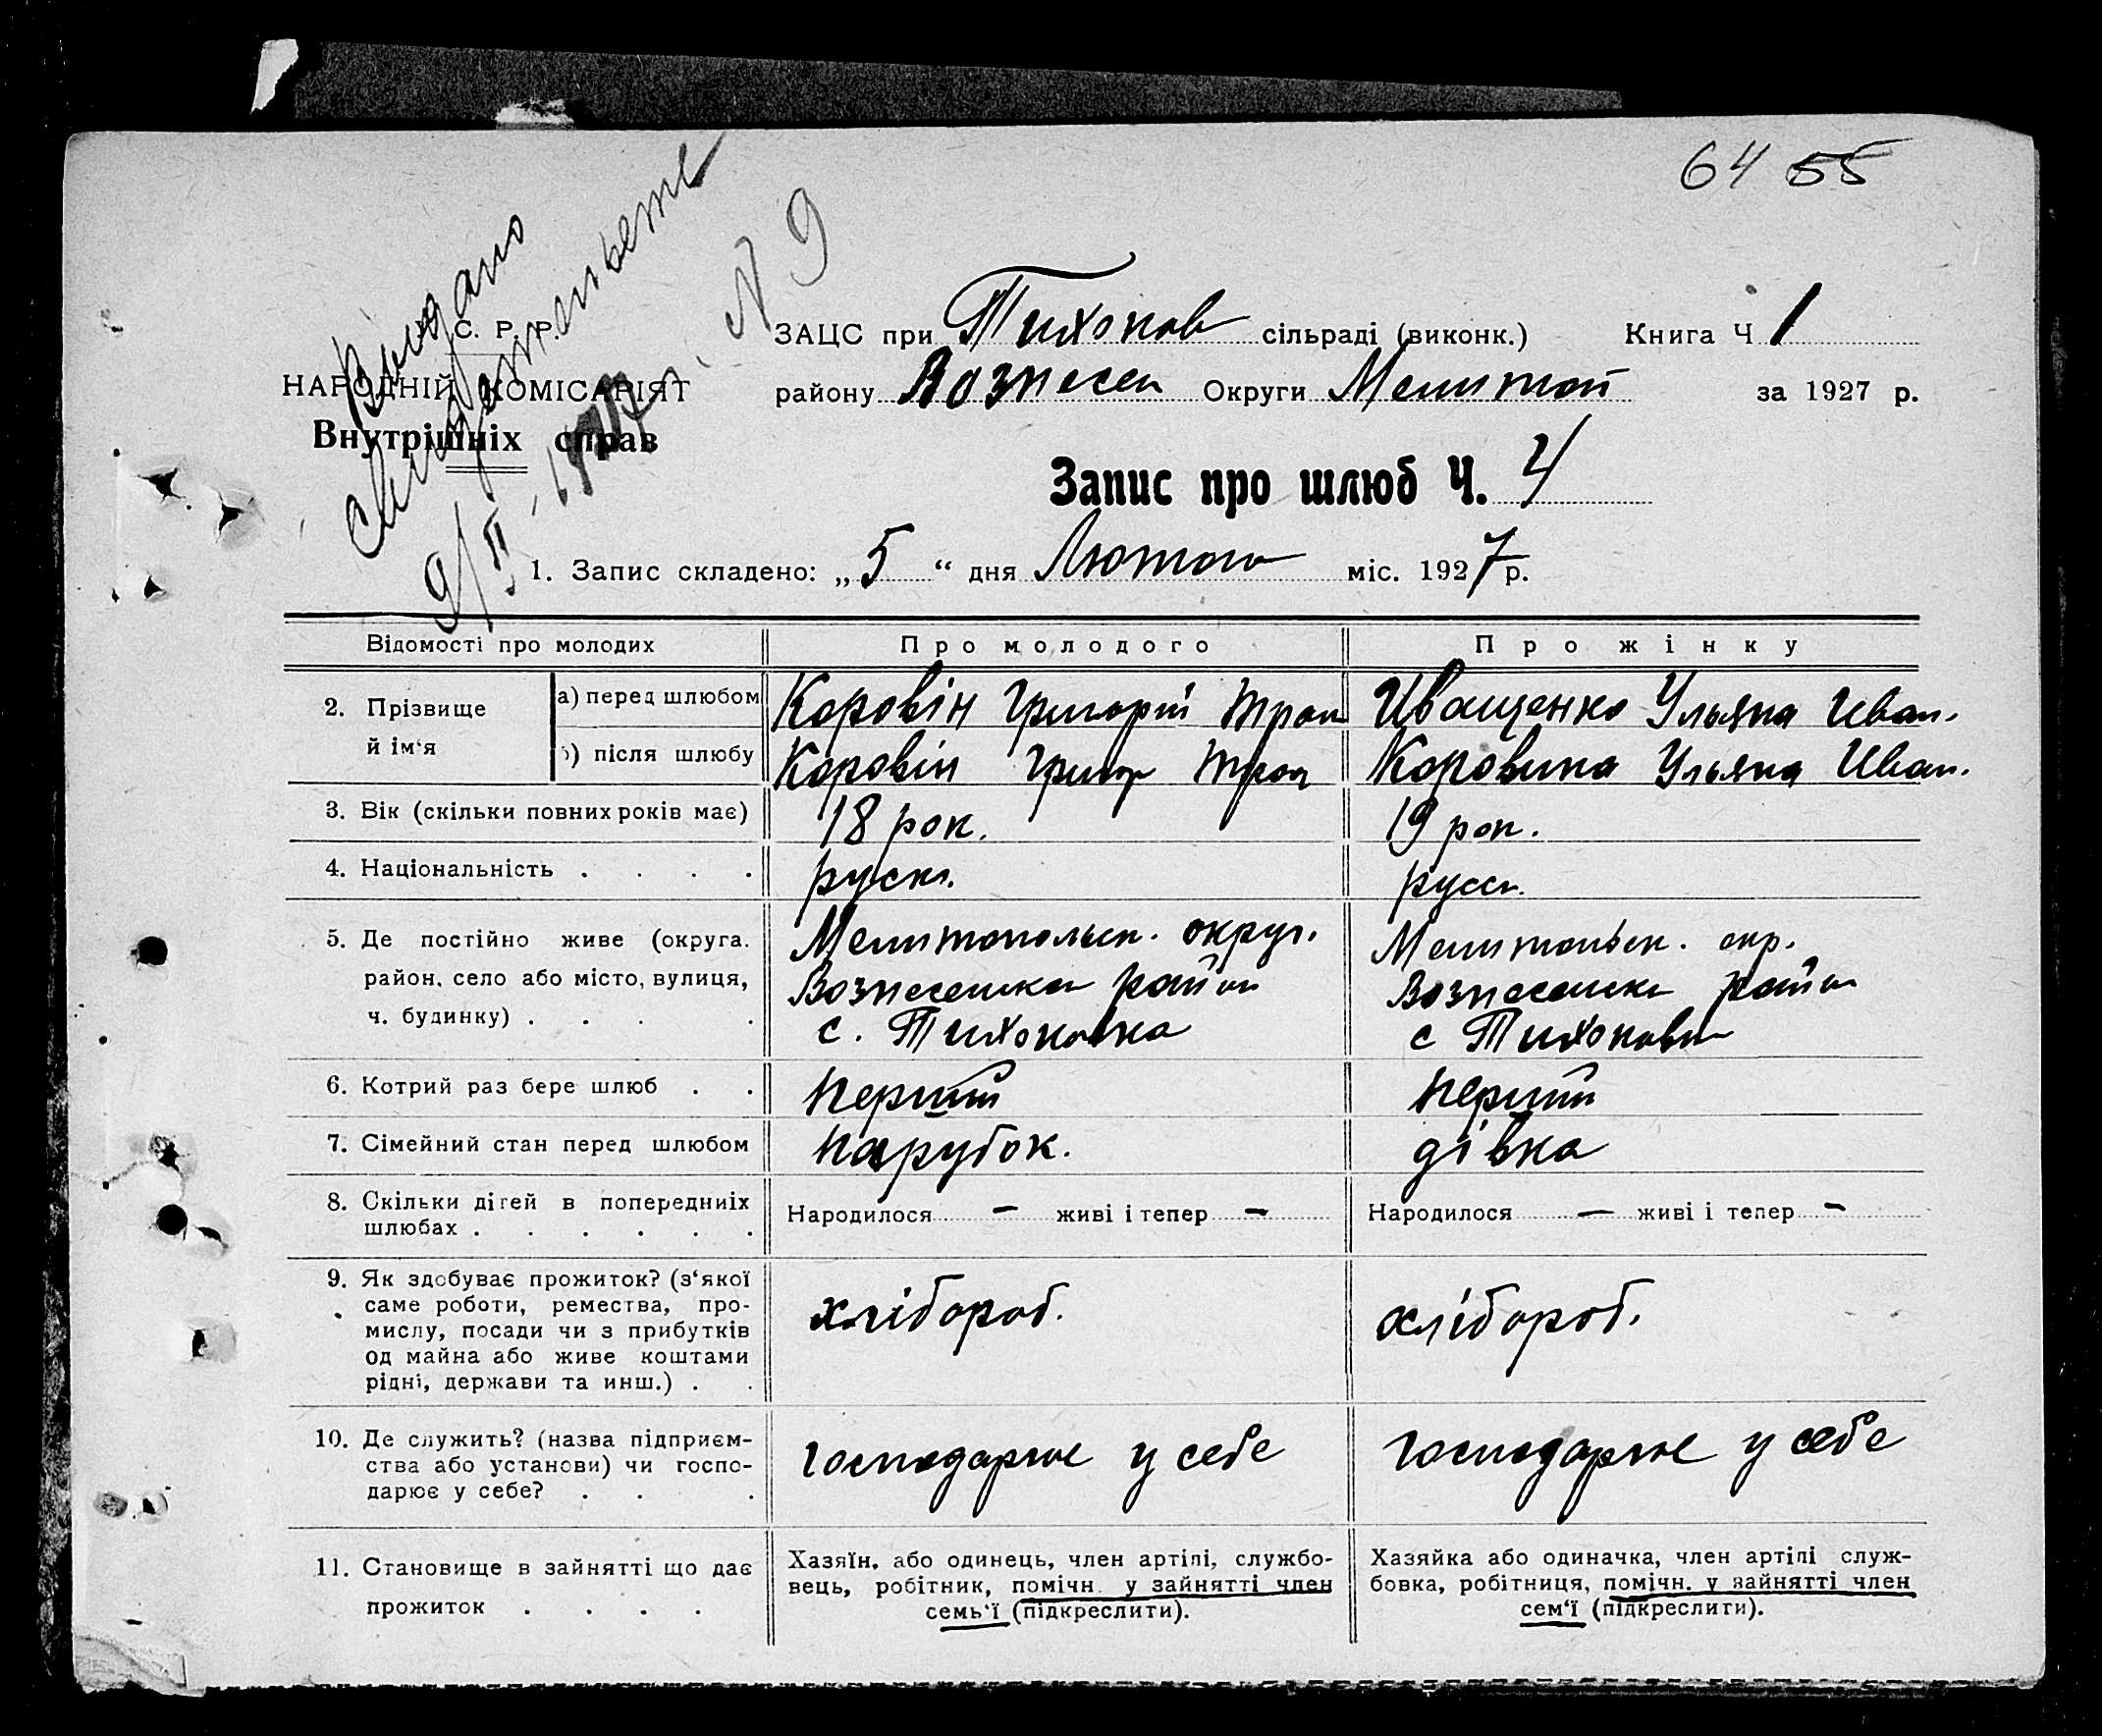 64 55
Выдано
свидетельств
9/II 1927 г. N 9
У. С. Р. Р.
НАРОДНІЙ КОМІСАРІЯТ
Внутрішніх справ
ЗАЦС при Тихонов сільраді (виконк.) Книга Ч 1
району Вознесен Округи Мелитоп за 1927 р.
Запис про шлюб Ч. 4
1. Запис складено: „5“ дня Лютого міс. 1927 р.
Відомості про молодих Про молодого Про жінку
2. Прізвище й ім‘я
а) перед шлюбом Коровін Григорій Троп Иващенко Ульяна Иван.
б) після шлюбу Коровін Григор Троп Коровина Ульяна Иван.
3. Вік (скільки повних років має) 18 рок. 19 рок.
4. Національність . . . . руск. русск.
5. Де постійно живе (округа. Мелитопольск. округ. Мелитопльск. окр.
район, село або місто, вулиця, Вознесенска район Вознесенск район
ч. будинку) . . . . с. Тихоновка с Тихоновк
6. Котрий раз бере шлюб . . перший перший
7. Сімейний стан перед шлюбом парубок. дівка
8. Скільки дітей в попередниіх Народилося — живі і тепер — Народилося — живі і тепер —
шлюбах . . . . . .
9. Як здобуває прожиток? (з‘якої
саме роботи, ремества, про- хлібороб. хлібороб.
мислу, посади чи з прибутків
од майна або живе коштами
рідні, держави та инш.) . .
10. Де служить? (назва підприєм-
ства або установи) чи госпо- господарює у себе господарює у себе
дарює у себе? . . .
11. Становище в зайнятті що дає Хазяїн, або одинець, член артілі, службо- Хазяйка або одиначка, член артілі служ-
вець, робітник, помічн. у зайнятті член бовка, робітниця, помічн. у зайнятті член
прожиток . . . . семь‘ї (підкреслити). сем‘ї (підкреслити).